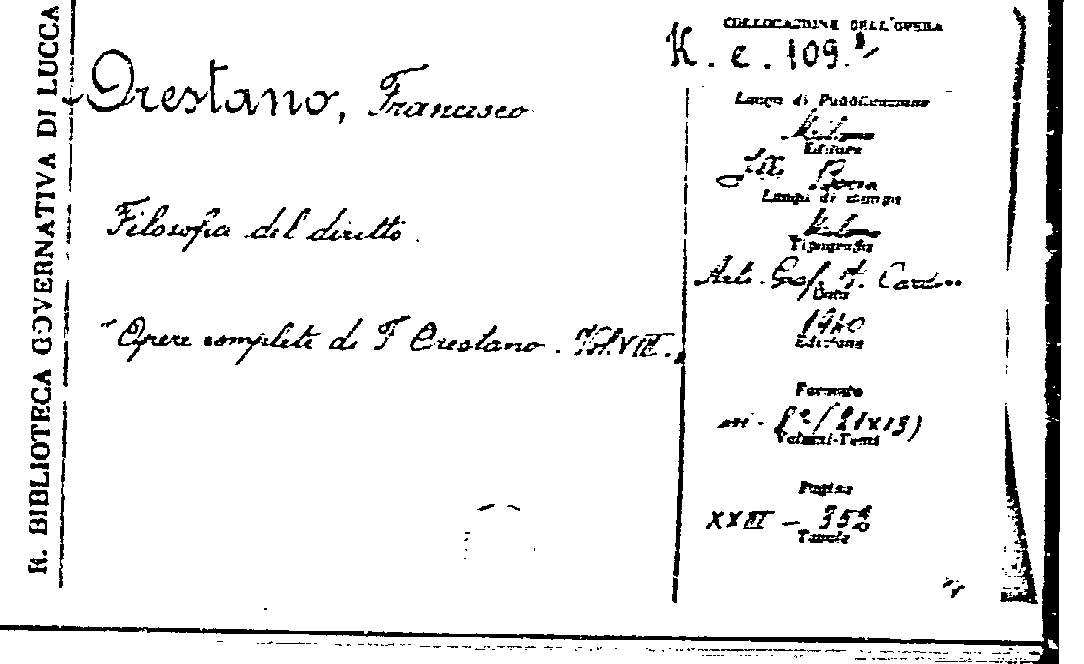 R. BIBLIOTECA GOVERNATIVA DI LUCCA
Orestano, Francesco
Filosofia del diritto.
"Opere complete di F. Orestano. Vol. VIII."
COLLOCAZIONE DELL'OPERA
K. e. 109.
Luogo di Pubblicazione
Milano
Editore
Bocca
Luogo di stampa
Milano
Tipografia
Arti. Graf. A. Cord...
Data
1940
Edizione
Formato
in-8º (21x13)
Volumi-Tomi
Pagine
XXIII - 352
Tavole